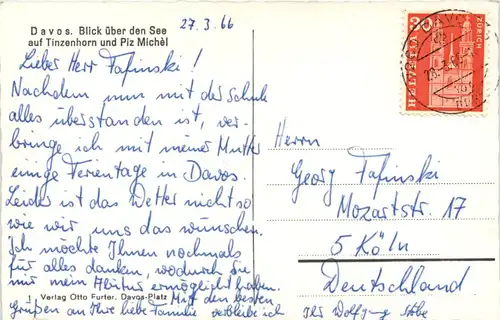 27.3.66
Davos. Blick über den See
auf Tinzenhorn und Piz Michèl
Lieber Herr Tafinski!
Nachdem nun mit der Schule
alles überstanden ist, ver-
bringe ich mit meiner Mutter
einige Ferientage in Davos.
Leider ist das Wetter nicht so
wie wir uns das wünschen.
Ich möchte Ihnen nochmals
für alles danken, wodurch Sie
mir mein Abitur ermöglicht haben.
Verlag Otto Furter, Davos-Platz
Mit den besten
Grüßen an Ihre liebe Familie verbleibe ich
Ihr Wolfgang
HELVETIA
ZÜRICH
Herrn
Georg Tafinski
Mozartstr. 17
5 Köln
Deutschland